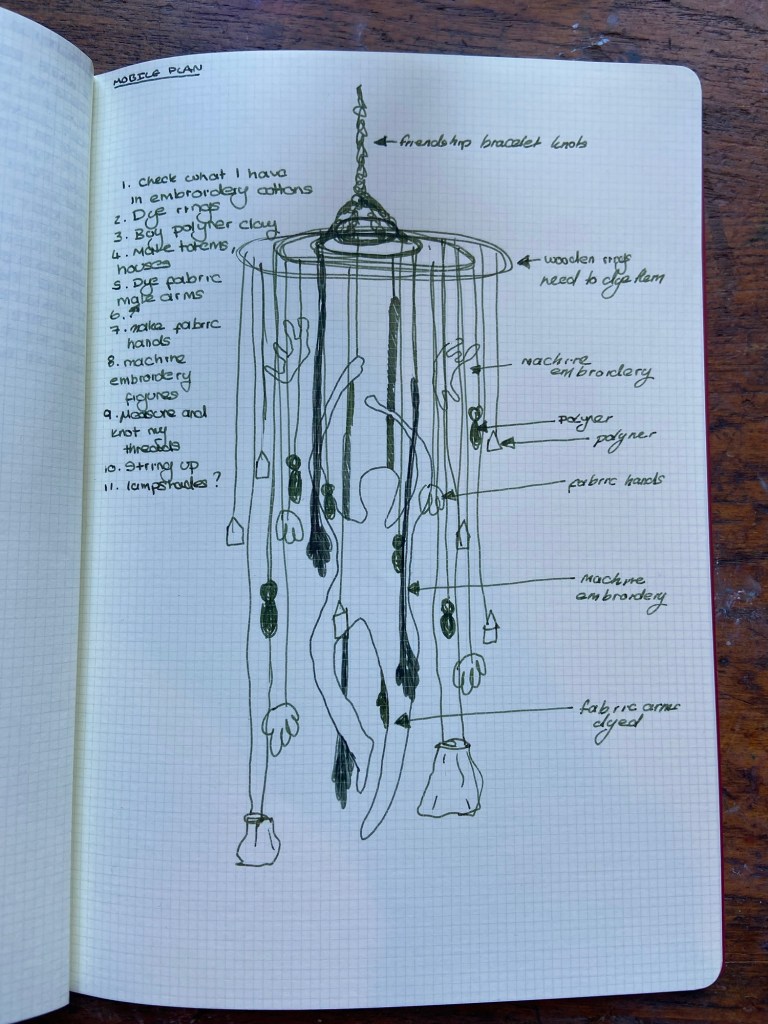 MOBILE PLAN
1. Check what I have
in embrordery cottons
2. Dye rings
3. Buy polymer clay
4. Make totems,
houses
5. Dye fabric
make arms
6. ?
7. make fabric
hands
8. machine
embroidery
figures
9. Measure and
knot my
threads
10. String up
11. lampshades?
friendship bracelet knots
wooden rings
need to dye them
Machine
embroidery
polyer
polymer
fabric hands
Machine
embroidery
fabric arms
dyed